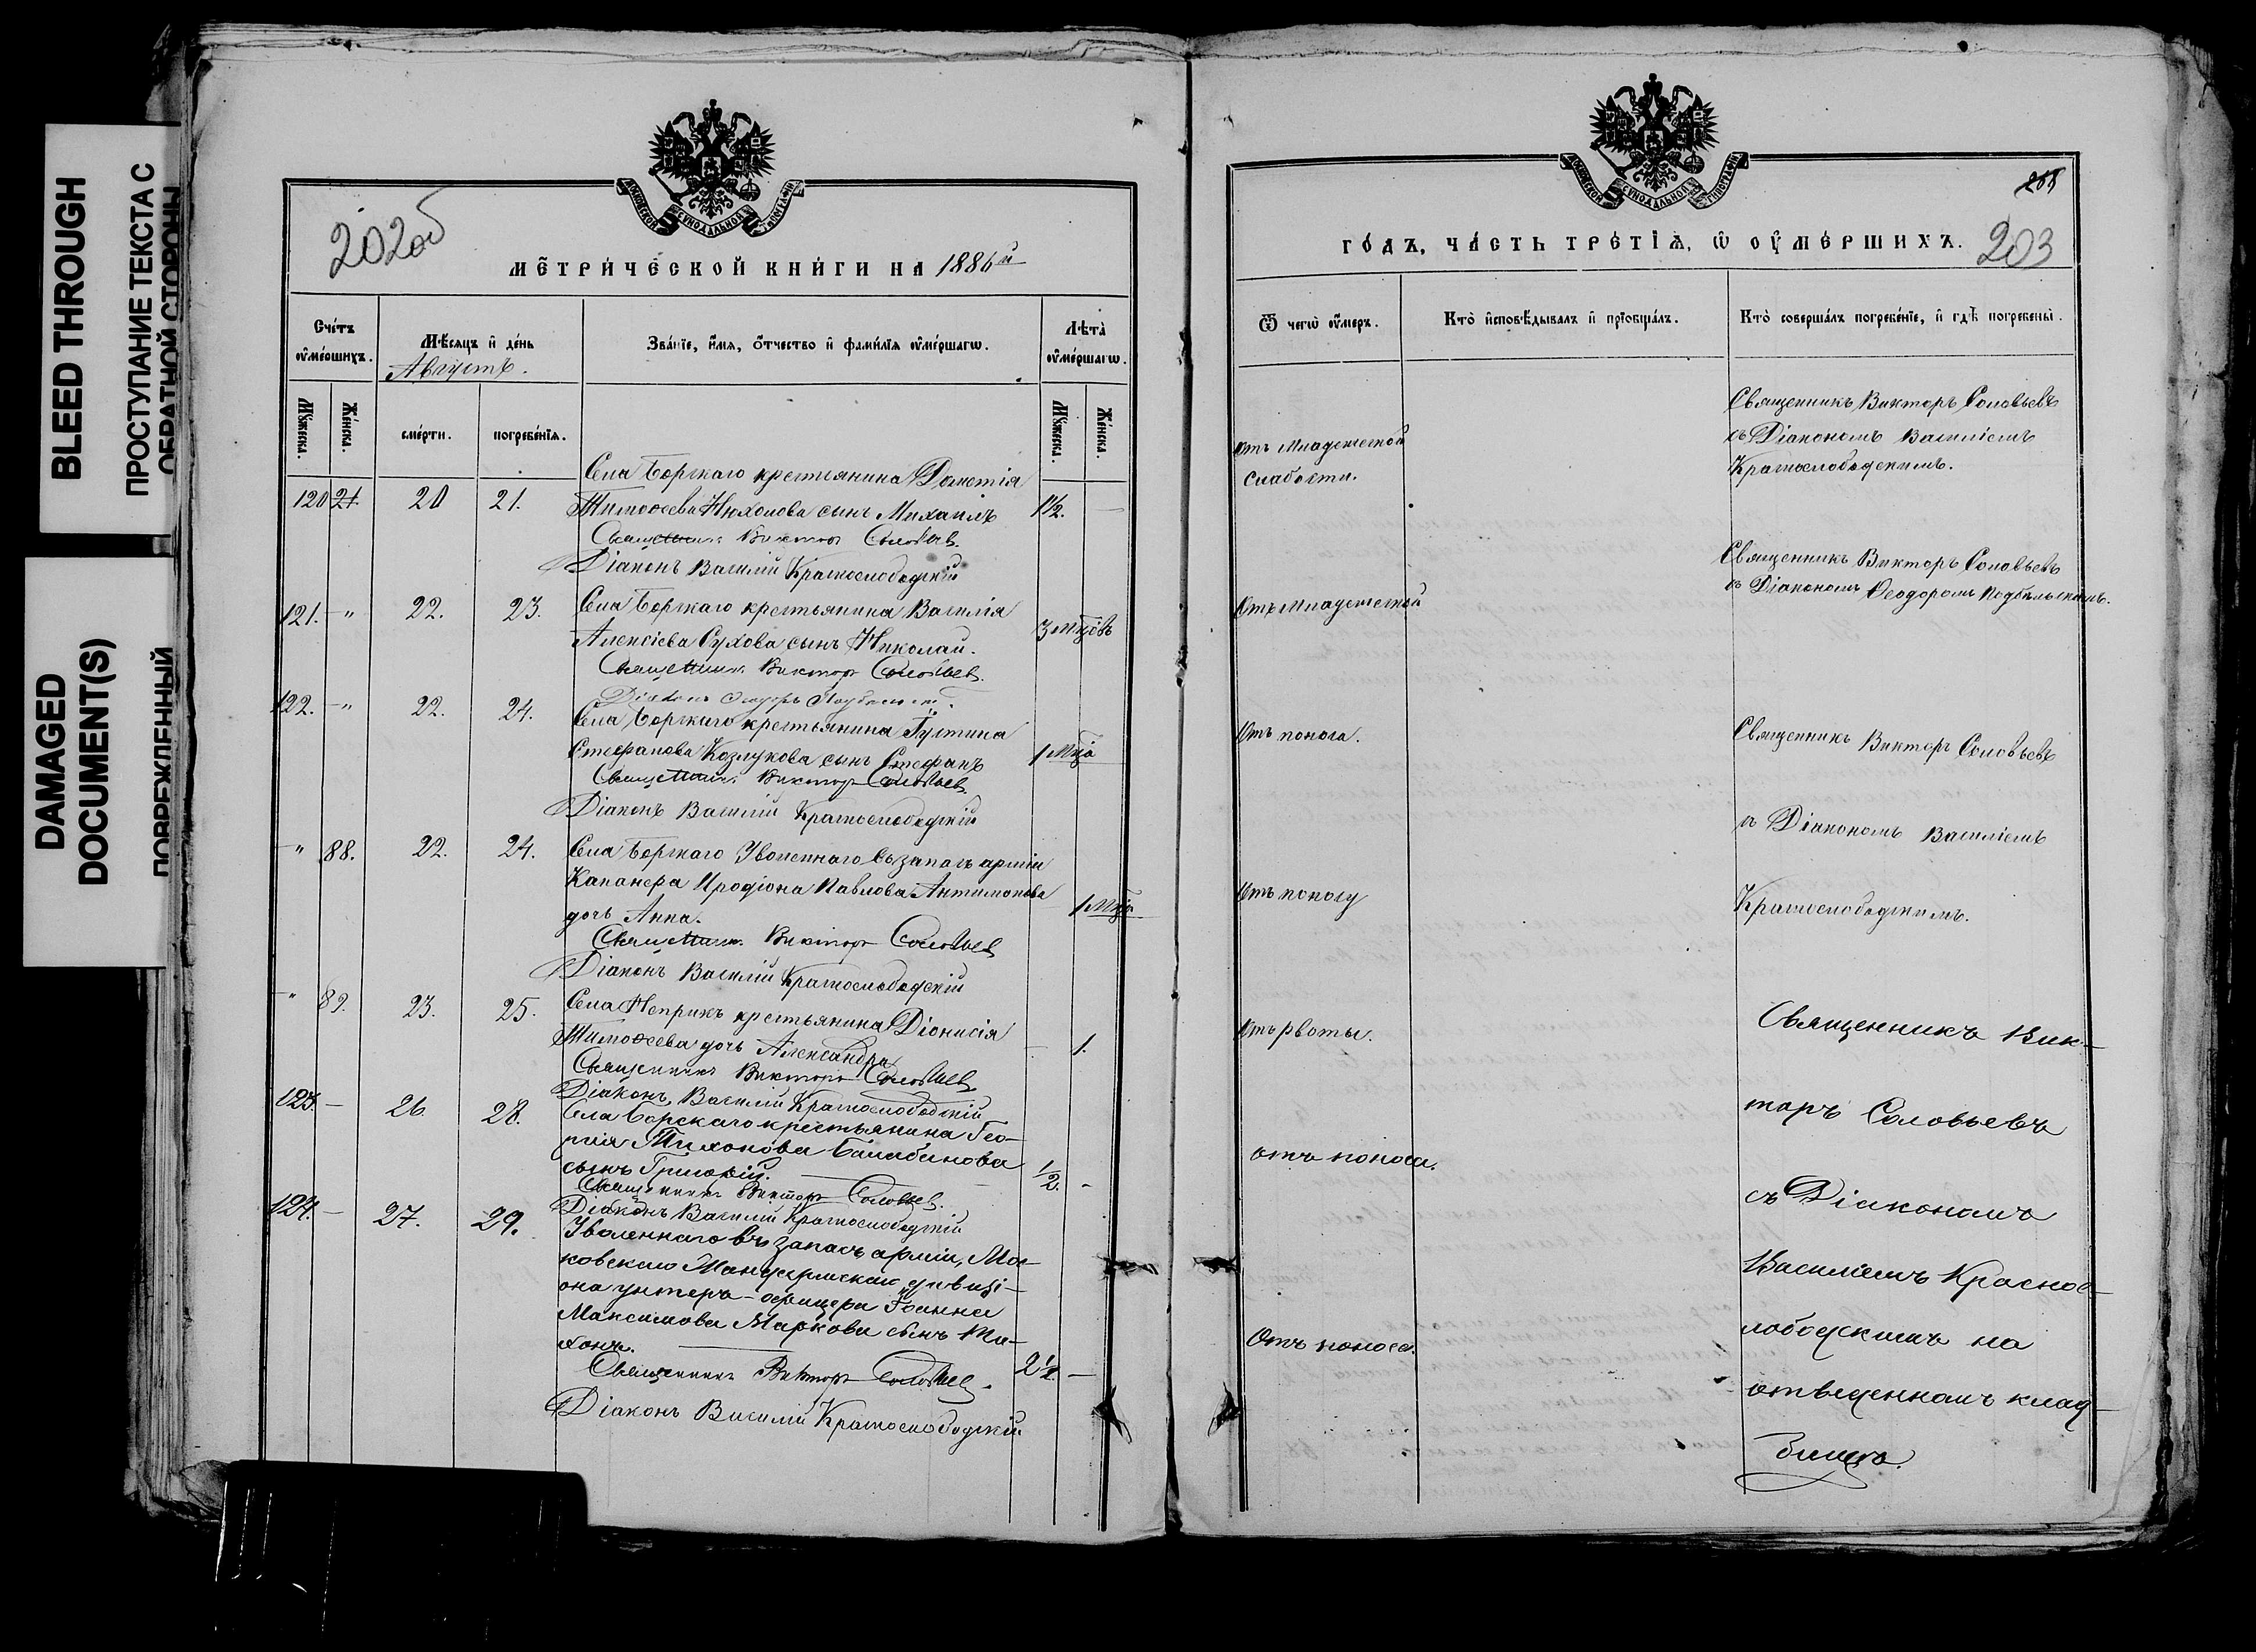 BLEED THROUGH
ПРОСТУПАНИЕ ТЕКСТА С
ОБРАТНОЙ СТОРОНЫ
DAMAGED
DOCUMENT(S)
ПОВРЕЖДЕННЫЙ
202об
МЕТРИЧЕСКОЙ КНИГИ НА 1886й
Счетъ
оумершихъ.
Мѣсяцъ и день
Августъ.
Званіе, имя, отчество и фамилія оумершагѡ.
Лѣта
оумершагѡ.
Мужеска.
Женска.
смерти.
погребенія.
Мужеска.
Женска.
Села Борскаго крестьянина Дометія
120 21. 20 21. Тимоѳеева Нюхолова сынъ Михаилъ 1½. —
Священникъ Викторъ Соловьев.
Діаконъ Василій Краснослободскій
121. — " 22. 23. Села Борскаго крестьянина Василія
Алексіева Сухова сынъ Николай. 3 мцовъ
Священникъ Викторъ Соловьев.
Діаконъ Ѳеодоръ
122. — " 22. 24. Села Борскаго крестьянина Іустина
Стефанова Козлукова сынъ Стефанъ 1 мца
Священникъ Викторъ Соловьев.
Діаконъ Василій Краснослободскій
— " 88. 22. 24. Села Борскаго Уволеннаго въ запасъ арміи
Канонера Иродіона Павлова Антимонова
дочь Анна. 1 мца
Священникъ Викторъ Соловьев
Діаконъ Василій Краснослободскій
— " 89. 23. 25. Села Неприкъ крестьянина Діонисія
Тимоѳеева дочь Александра — 1.
Священникъ Викторъ Соловьев
Діаконъ Василій Краснослободскій
123. — 26 28. Села Борскаго крестьянина Геор-
гія Тихонова Балабанова
сынъ Григорій. ½. -
Священникъ Викторъ Соловьев.
Діаконъ Василій Краснослободскій
124. — 27. 29. Уволеннаго въ запасъ арміи, Мос-
ковскаго Жандармскаго дивизі-
она унтеръ-офицера Іоанна
Максимова Маркова сынъ Ти-
хонъ. 2½ —
Священникъ Викторъ Соловьев.
Діаконъ Василій Краснослободскій
203
ГОДЪ, ЧАСТЬ ТРЕТІЯ, Ѡ ОУМЕРШИХЪ.
Ѿ чегѡ оумеръ.
Кто исповѣдывалъ и пріобщалъ.
Кто совершалъ погребеніе, и гдѣ погребены.
Отъ младенческой
слабости.
Священникъ Викторъ Соловьевъ
съ Діакономъ Василіемъ
Краснослободскимъ.
Отъ младенческой
Священникъ Викторъ Соловьевъ
съ Діакономъ Ѳеодоромъ Подбѣльскимъ.
Отъ поноса.
Священникъ Викторъ Соловьевъ
съ Діакономъ Василіемъ
Отъ поносу
Краснослободскимъ.
Отъ рвоты.
Священникъ Вик-
торъ Соловьевъ
отъ поноса.
съ Діакономъ
Василіемъ Краснос-
Отъ поноса.
лободскимъ на
отведенномъ клад-
бищѣ.